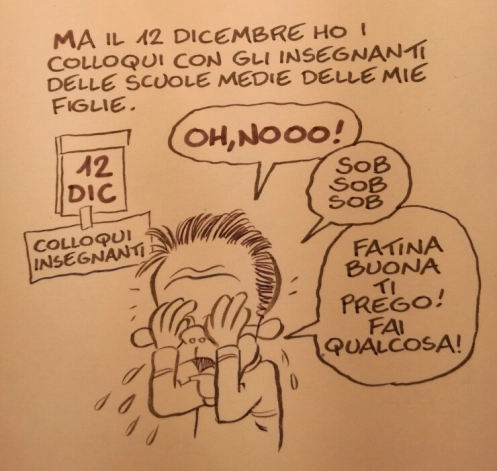 MA IL 12 DICEMBRE HO I
COLLOQUI CON GLI INSEGNANTI
DELLE SCUOLE MEDIE DELLE MIE
FIGLIE.
OH, NOOO!
12
DIC
COLLOQUI
INSEGNANTI
SOB
SOB
SOB
FATINA
BUONA
TI
PREGO!
FAI
QUALCOSA!